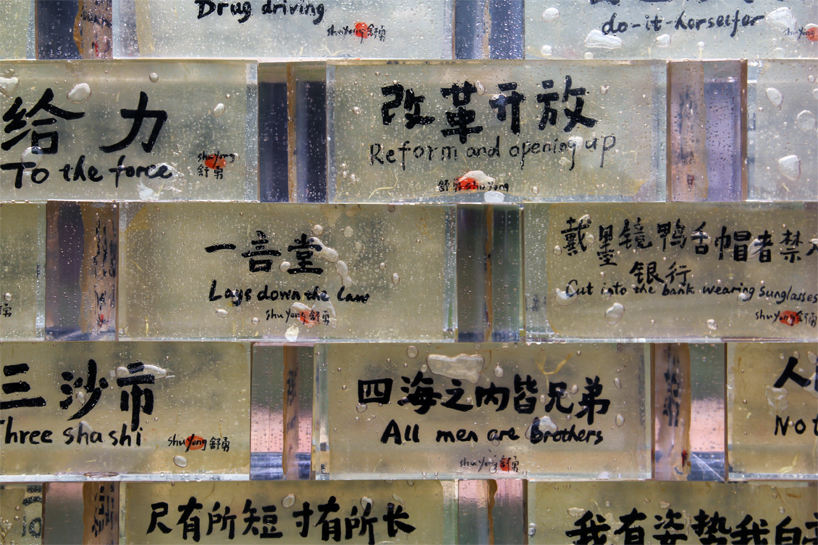 Drug driving
shuyong 舒勇
do-it-herself er
给力
To the force
shuyong
舒勇
改革开放
Reform and opening up
舒勇 shuyong
一言堂
Lays down the law
shuyong 舒勇
戴墨镜鸭舌帽者禁入
银行
Cut into the bank wearing Sunglasses
shuyong 舒勇
三沙市
Three sha shi
shuyong 舒勇
四海之内皆兄弟
All men are brothers
shuyong 舒勇
人
Not
尺有所短寸有所长
我有姿势我自